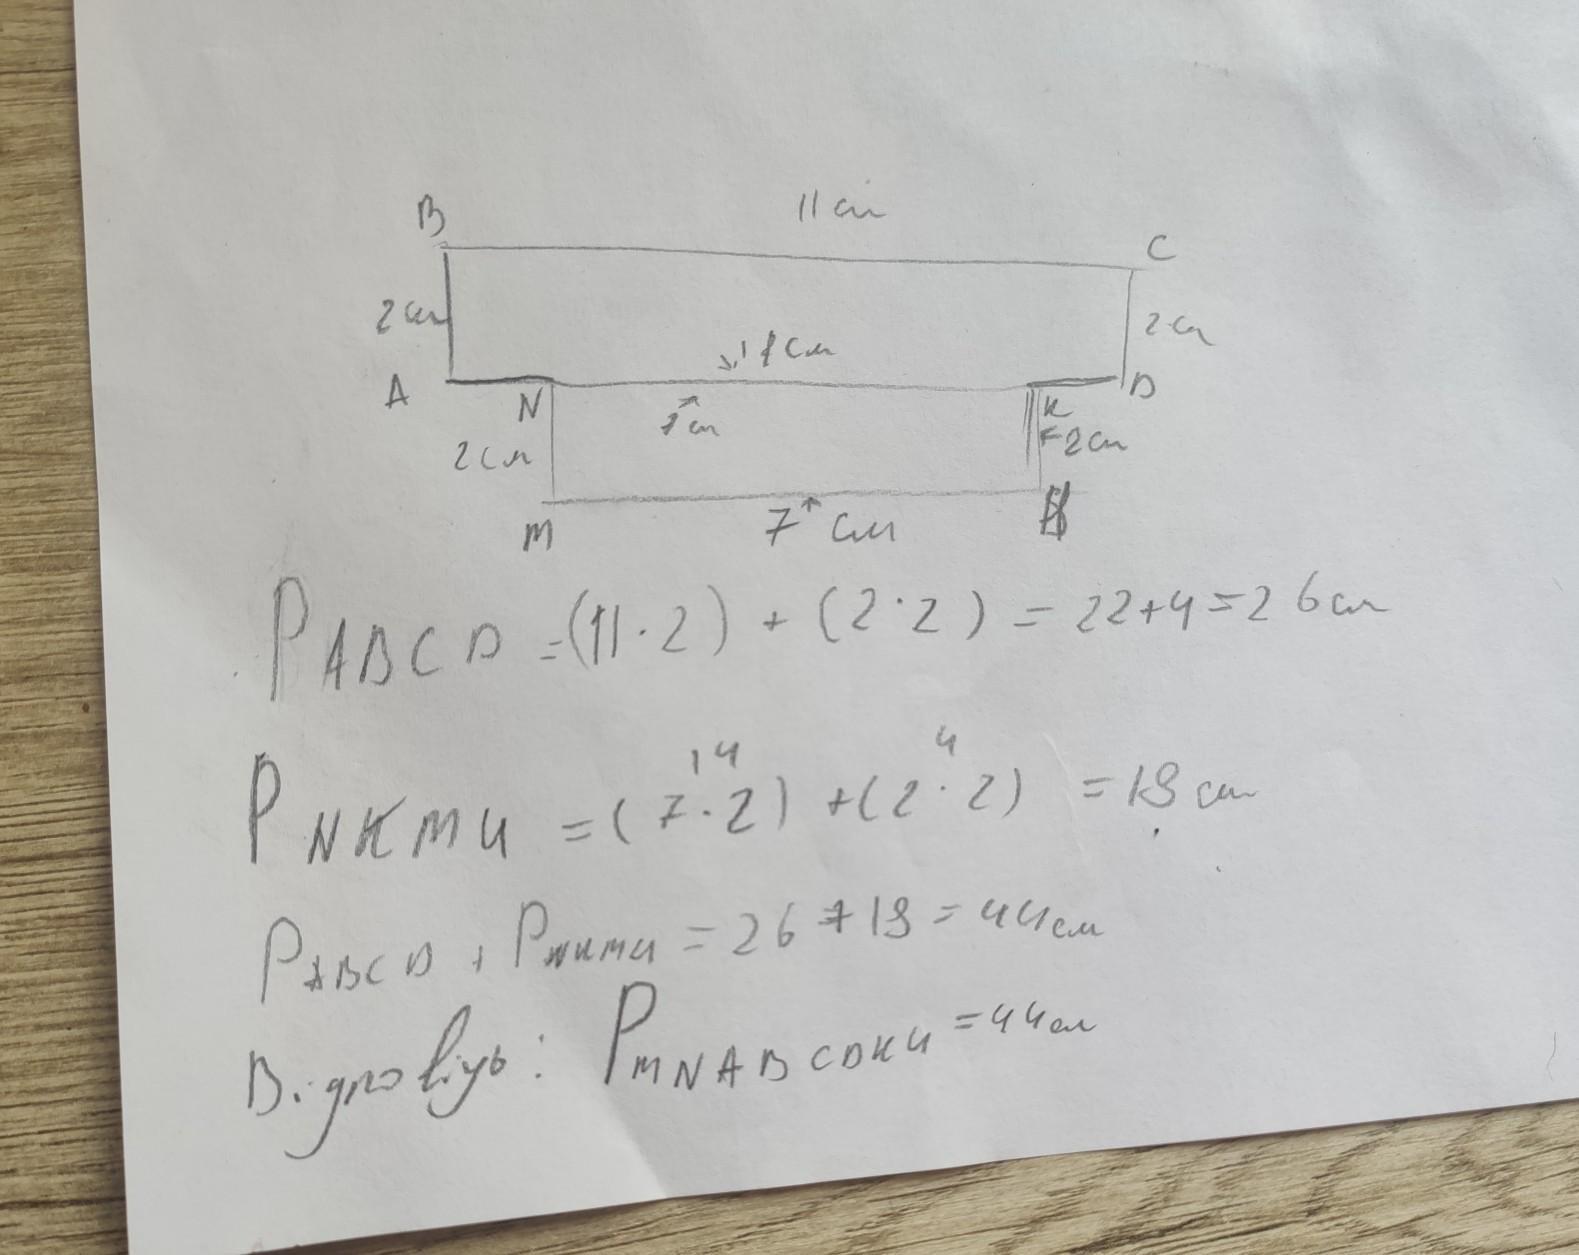 B 11 см C
2 см 2 см
11 см
A N 7 см K D
2 см 2 см
M 7 см
P ABCD = (11 · 2) + (2 · 2) = 22 + 4 = 26 см
14 4
P NKMЧ = (7 · 2) + (2 · 2) = 18 см
P ABCD + P NKMЧ = 26 + 18 = 44 см
Відповідь: P MNABCDKЧ = 44 см